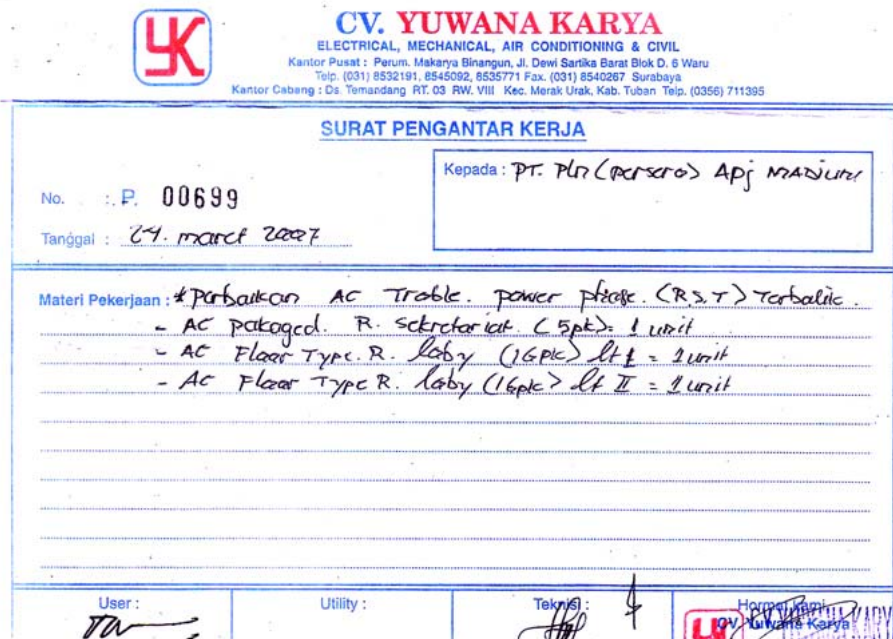 YK
CV. YUWANA KARYA
ELECTRICAL, MECHANICAL, AIR CONDITIONING & CIVIL
Kantor Pusat : Perum. Makarya Binangun, Jl. Dewi Sartika Barat Blok D. 6 Waru
Telp. (031) 8532191, 8545092, 8535771 Fax. (031) 8540267 Surabaya
Kantor Cabang : Ds. Temandang RT. 03 RW. VIII Kec. Merak Urak, Kab. Tuban Telp. (0356) 711395
SURAT PENGANTAR KERJA
Kepada : PT. Pln (persero) APj MADIUN
No. : P. 00699
Tanggal : 24. maret 2007
Materi Pekerjaan : * Perbaikan AC Troble. power phase. (R.S.T) Terbalik.
- AC pakaged. R. sekretariat. (5pk) = 1 unit
- AC Floor Type. R. loby (16pk) lt I = 1 unit
- AC Floor Type R. loby (16pk) lt II = 1 unit
User :
Utility :
Teknisi :
Hormat kami
CV. Yuwana Karya